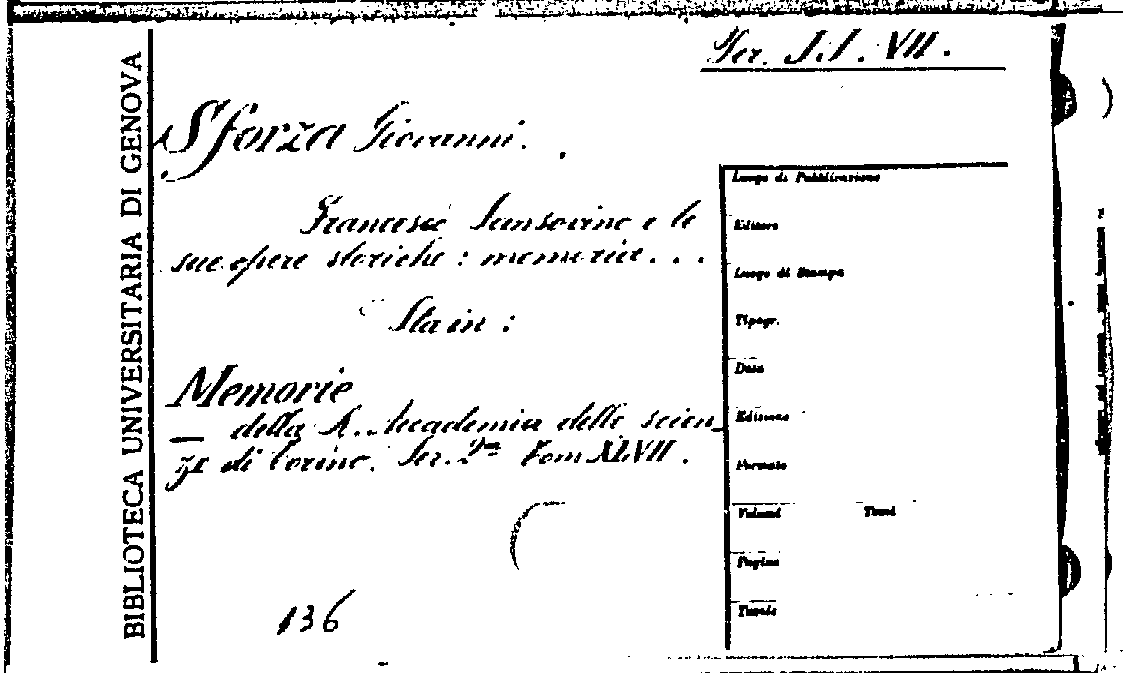 BIBLIOTECA UNIVERSITARIA DI GENOVA
Ser. I.I. VII.
Sforza Giovanni.
Francesco Sansovino e le
sue opere storiche : memoria...
Sta in :
Memorie
della R. Accademia delle scien_
ze di Torino. Ser. 2ª Tom XLVII.
136
Luogo di Pubblicazione
Editore
Luogo di Stampa
Tipogr.
Data
Edizione
Formato
Volumi Tomi
Pagine
Tavole